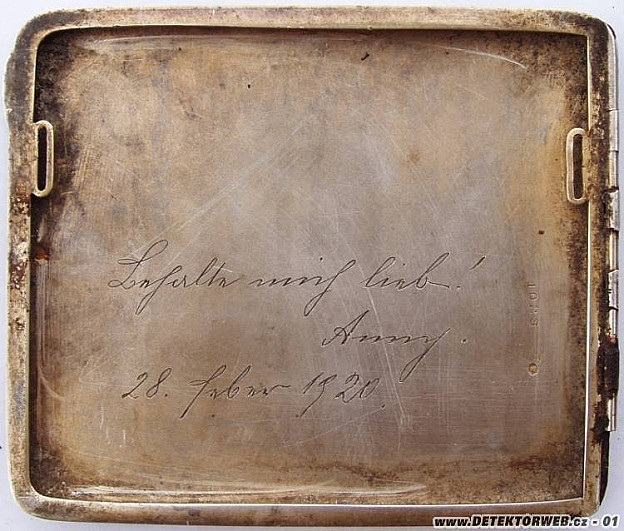 Behalte mich lieb!
Anny.
28. Feber 1920.
www.DETEKTORWEB.cz - 01